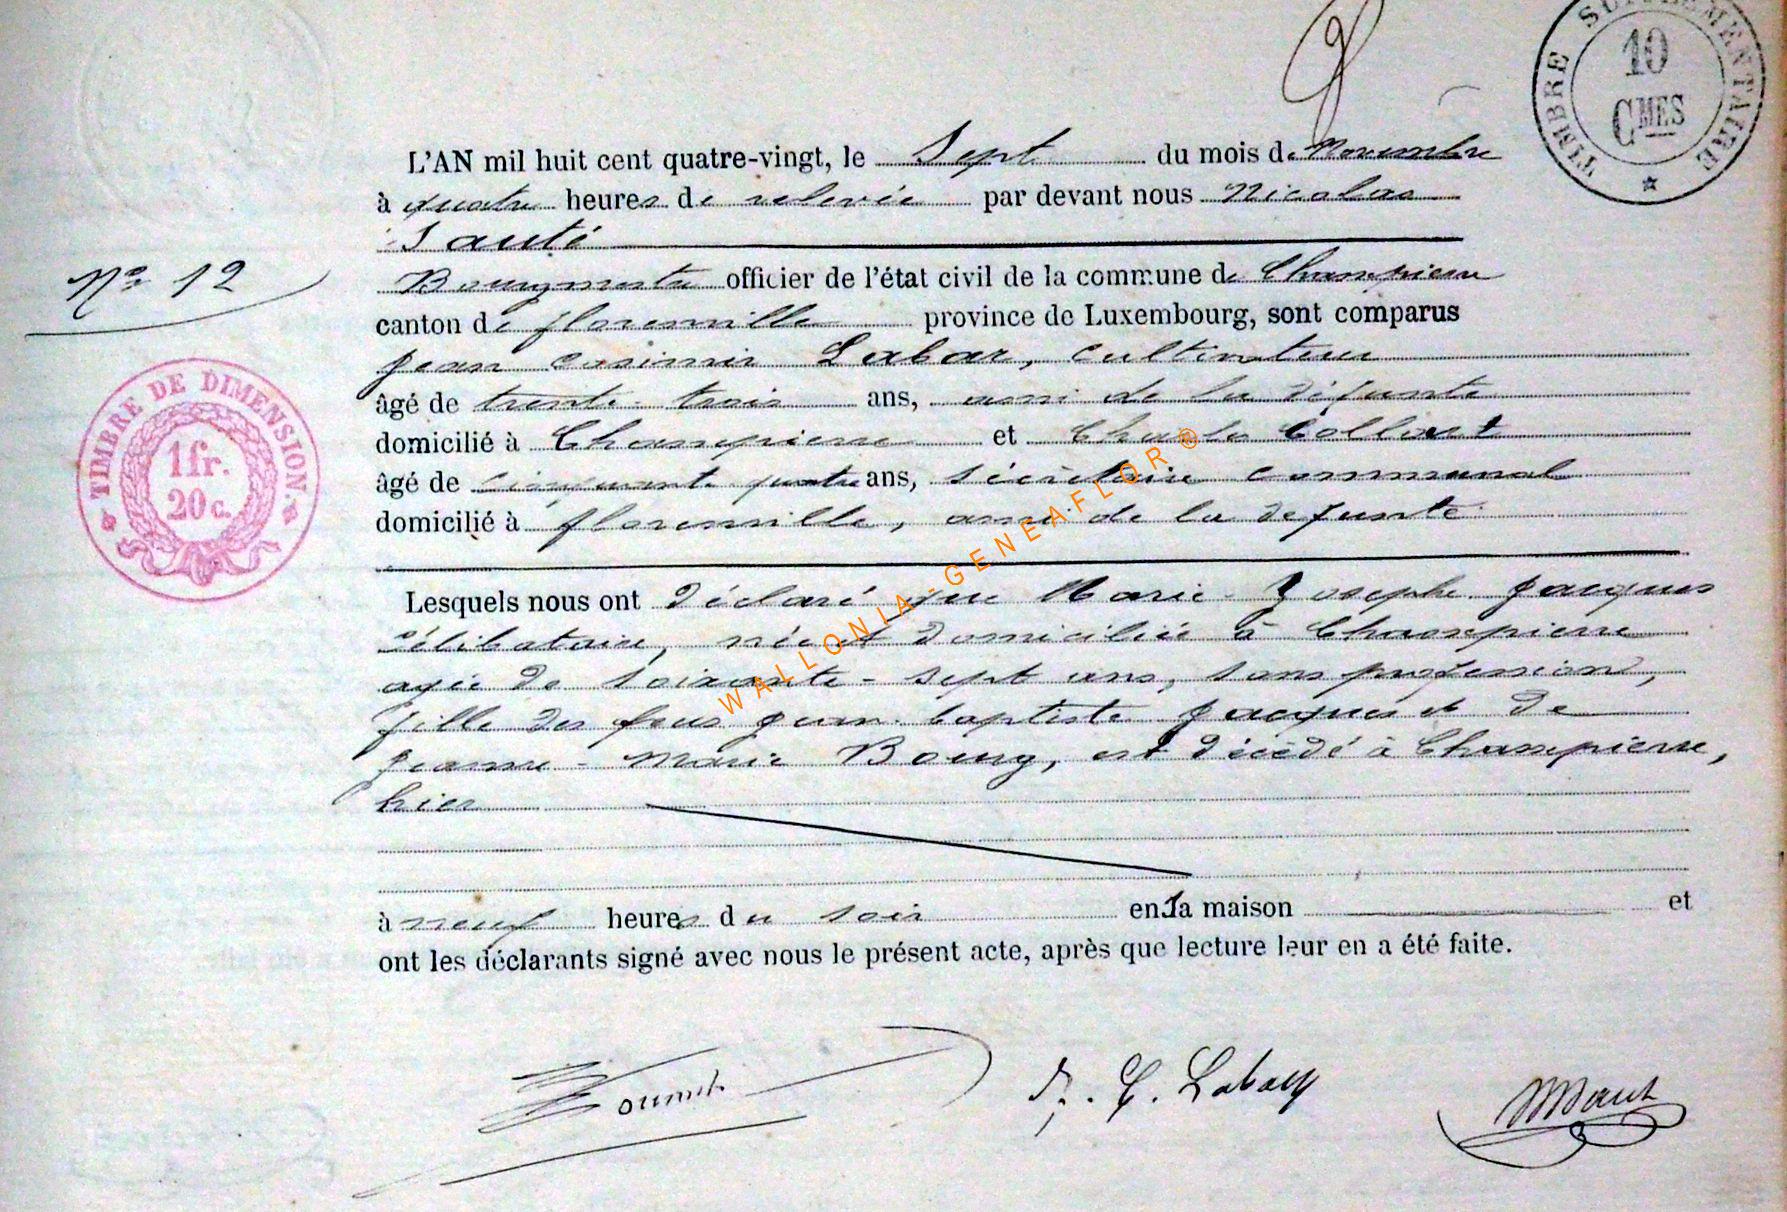 TIMBRE SUPPLEMENTAIRE
10
CMES
L'AN mil huit cent quatre-vingt, le Sept du mois de Novembre
à quatre heures de relevée par devant nous Nicolas
Bourgmestre officier de l'état civil de la commune de Champierre
N° 12
canton de florenville province de Luxembourg, sont comparus
Jean Casimir Labar, cultivateur
âgé de trente-trois ans, ami de la défunte
domicilié à Champierre et Charles Collart
âgé de cinquante quatre ans, sécrétaire communal
domicilié à florenville, ami de la defunte
TIMBRE DE DIMENSION.
1 fr.
20 c.
Lesquels nous ont déclaré que Marie-Josephe Jacques
célibataire, née et domiciliée à Champierre
agée de soixante-sept ans, sans profession,
fille des feus Jean-baptiste Jacques et de
Jeanne-Marie Bourg, est décédé à Champierre,
hier
à neuf heures du soir en sa maison et
ont les déclarants signé avec nous le présent acte, après que lecture leur en a été faite.
WALLONIA-GENEAFLOR®